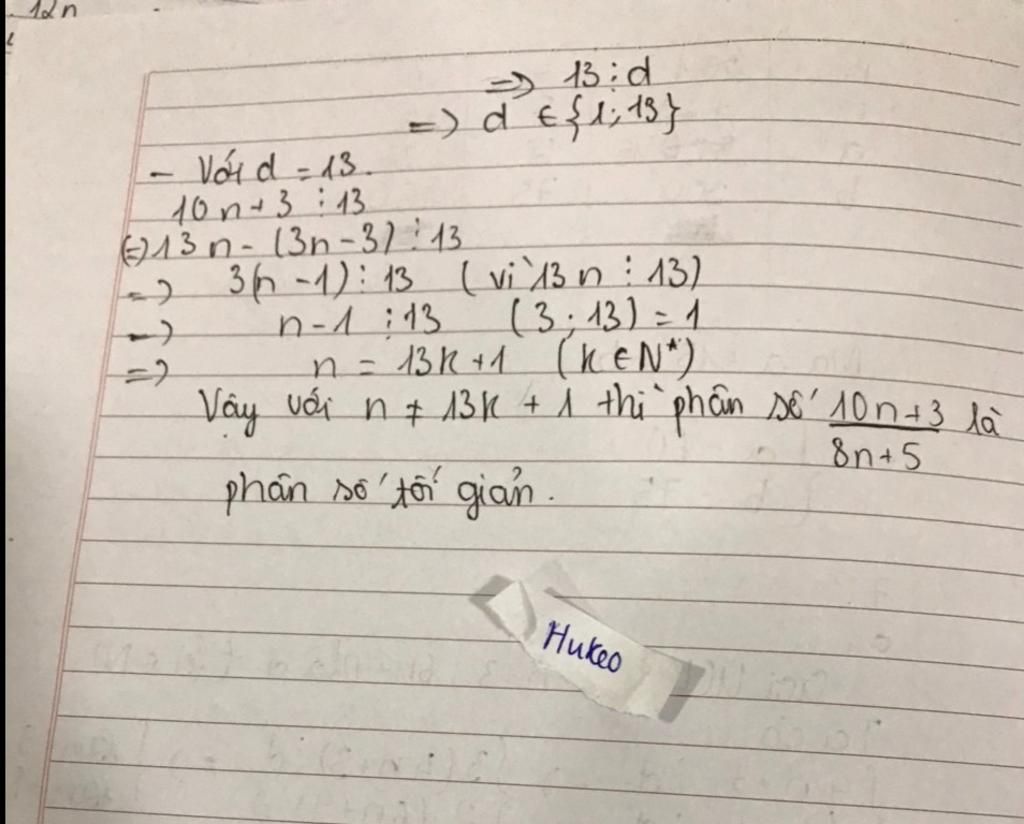 12n
=> 13 ⋮ d
=> d ∈ {1; 13}
- Với d = 13.
10n + 3 ⋮ 13
(=) 13n - (3n - 3) ⋮ 13
=> 3(n - 1) ⋮ 13 (vì 13n ⋮ 13)
=> n - 1 ⋮ 13 (3; 13) = 1
=> n = 13k + 1 (k ∈ N*)
Vậy với n ≠ 13k + 1 thì phân số 10n+3 là
8n+5
phân số tối giản.
Hukeo